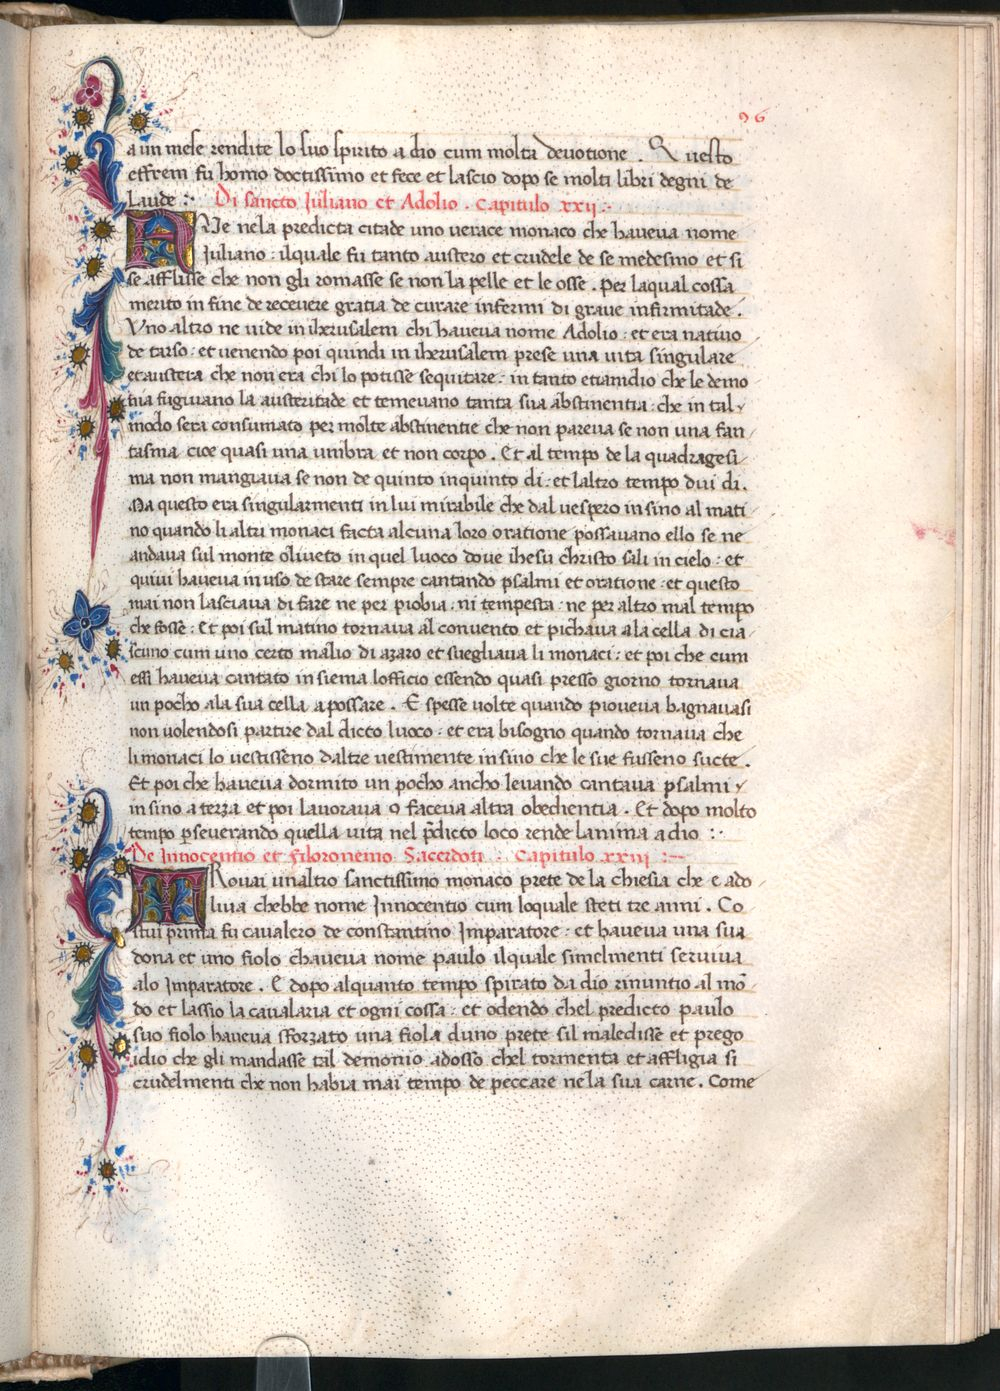 96
a un mese rendite lo suo spirito a dio cum molta devotione . Questo
effrem fu homo doctissimo et fece et lascio dopo se molti libri degni de
Laude : Di sancto Iuliano et Adolio . Capitulo xxij :
Ne nela predicta citade uno verace monaco che haveva nome
Iuliano : ilquale fu tanto austero et crudele de se medesmo et si
se afflisse che non gli romasse se non la pelle et le osse . Per laqual cossa
merito in fine de recevere gratia de curare infermi di grave infirmitade .
Vno altro ne vide in iherusalem chi haveva nome Adolio : et era nativo
de tarso : et venendo poi quindi in iherusalem prese una vita singulare
et austera che non era chi lo potisse sequitare : in tanto etiamdio che le demo
nia fugivano la austeritade et temevano tanta sua abstinentia : che in tal
modo sera consumato per molte abstinentie che non pareva se non una fan
tasma cioe quasi una umbra et non corpo . Et al tempo de la quadragesi
ma non mangiava se non de quinto inquinto di : et laltro tempo dui di .
Ma questo era singularmenti in lui mirabile che dal vespero in sino al mati
no quando li altri monaci facta alcuna loro oratione possavano ello se ne
andava sul monte oliveto in quel luoco dove ihesu christo sali in cielo : et
quivi haveva in uso de stare sempre cantando psalmi et oratione : et questo
mai non lasciava di fare ne per piobia : ni tempesta : ne per altro mal tempo
che fosse : Et poi sul matino tornava al convento et pichava ala cella di cia
scuno cum uno certo malio di azaro et svegliava li monaci : et poi che cum
essi haveva cantato in siema lofficio essendo quasi presso giorno tornava
un pocho ala sua cella a possare . E spesse volte quando pioveva bagnavasi
non volendosi partire dal dicto luoco : et era bisogno quando tornava che
li monaci lo vestisseno daltre vestimente in sino che le sue fusseno sucte .
Et poi che haveva dormito un pocho ancho levando cantava psalmi
in sino a terza et poi lavorava o faceva altra obedientia . Et dopo molto
tempo pseverando quella vita nel pdicto loco rende lanima a dio :
De Innocentio et filoronemo Sacerdoti : Capitulo xxiij :
Trovai unaltro sanctissimo monaco prete de la chiesia che e ado
liva chebbe nome Innocentio cum loquale steti tre anni . Co
stui prima fu cavalero de constantino Imparatore : et haveva una sua
dona et uno fiolo chaveva nome paulo ilquale simelmenti serviva
alo Imparatore . E dopo alquanto tempo spirato da dio rinuntio al mō
do et lassio la cavalaria et ogni cossa : et odendo chel predicto paulo
suo fiolo haveva sforzato una fiola duno prete sil maledisse et prego
idio che gli mandasse tal demonio adosso chel tormenta et affligia si
crudelmenti che non habia mai tempo de peccare nela sua carne . Come